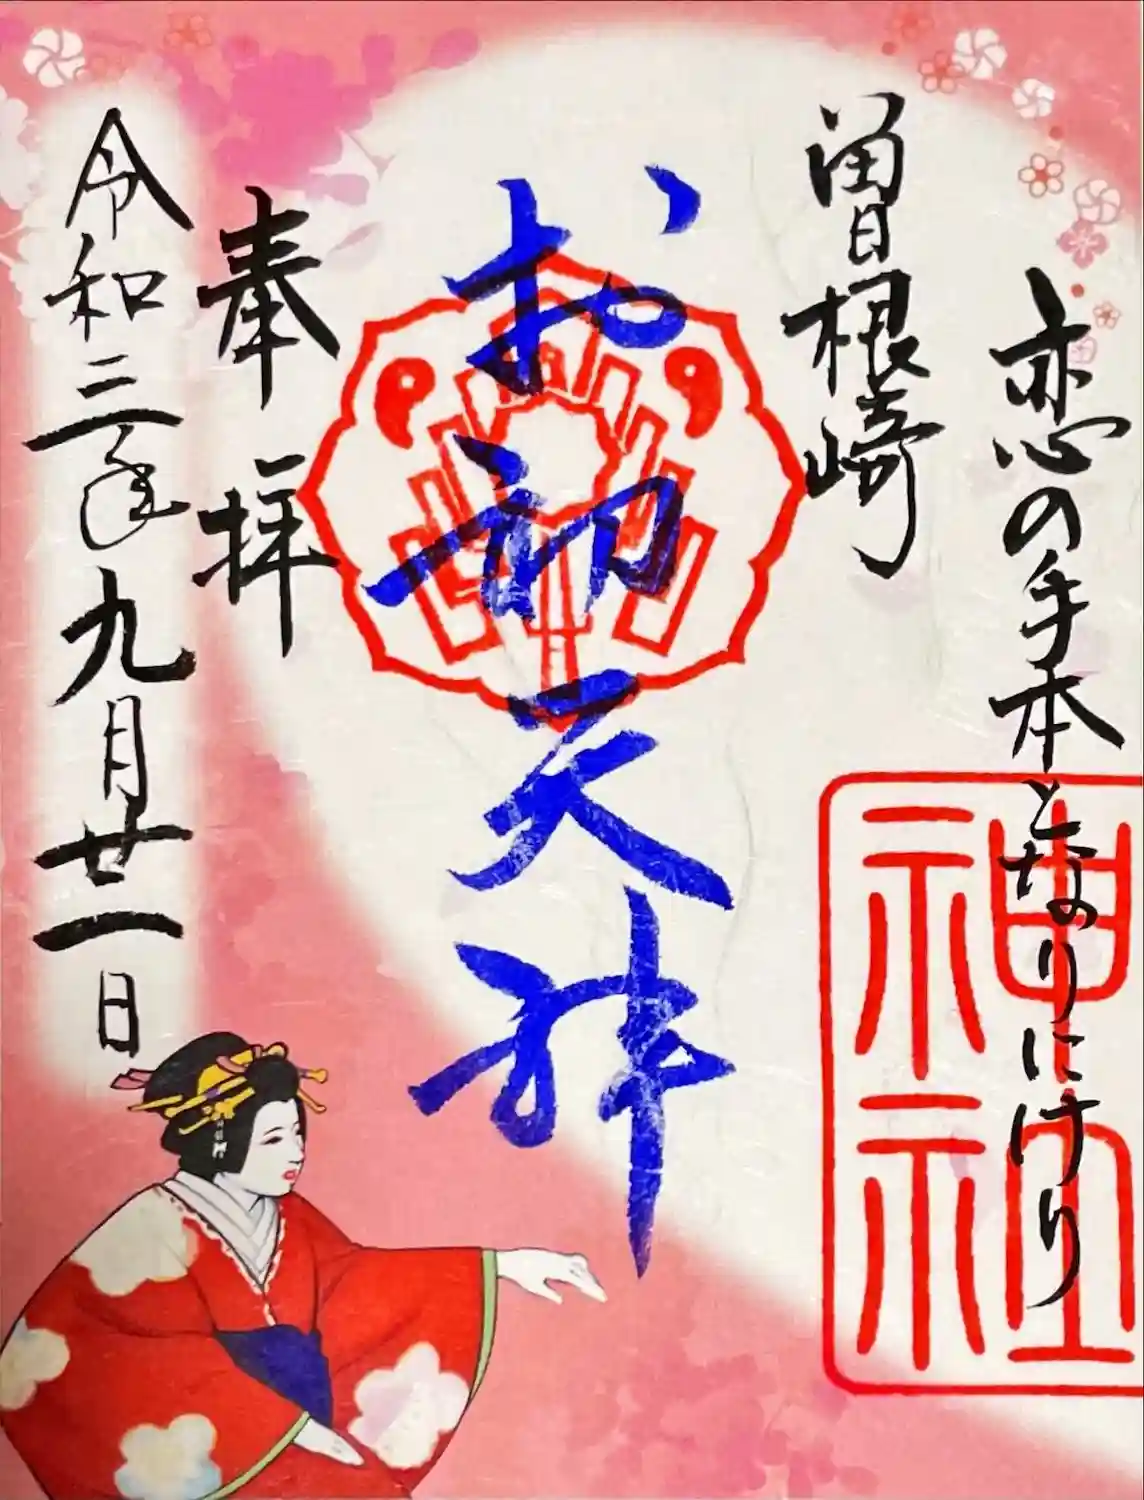 恋の手本となりにけり
曽根崎
お初天神
奉拝
令和三年九月廿一日
神社